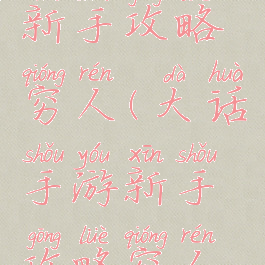 新手攻略
qióng rén dà huà
穷人(大话
shǒu yóu xīn shǒu
手游新手
gōng lüè qióng rén
攻略穷人